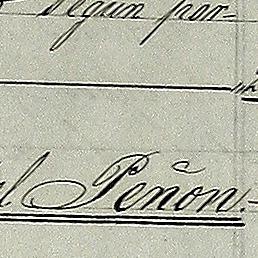 segun por-
al Peñon.